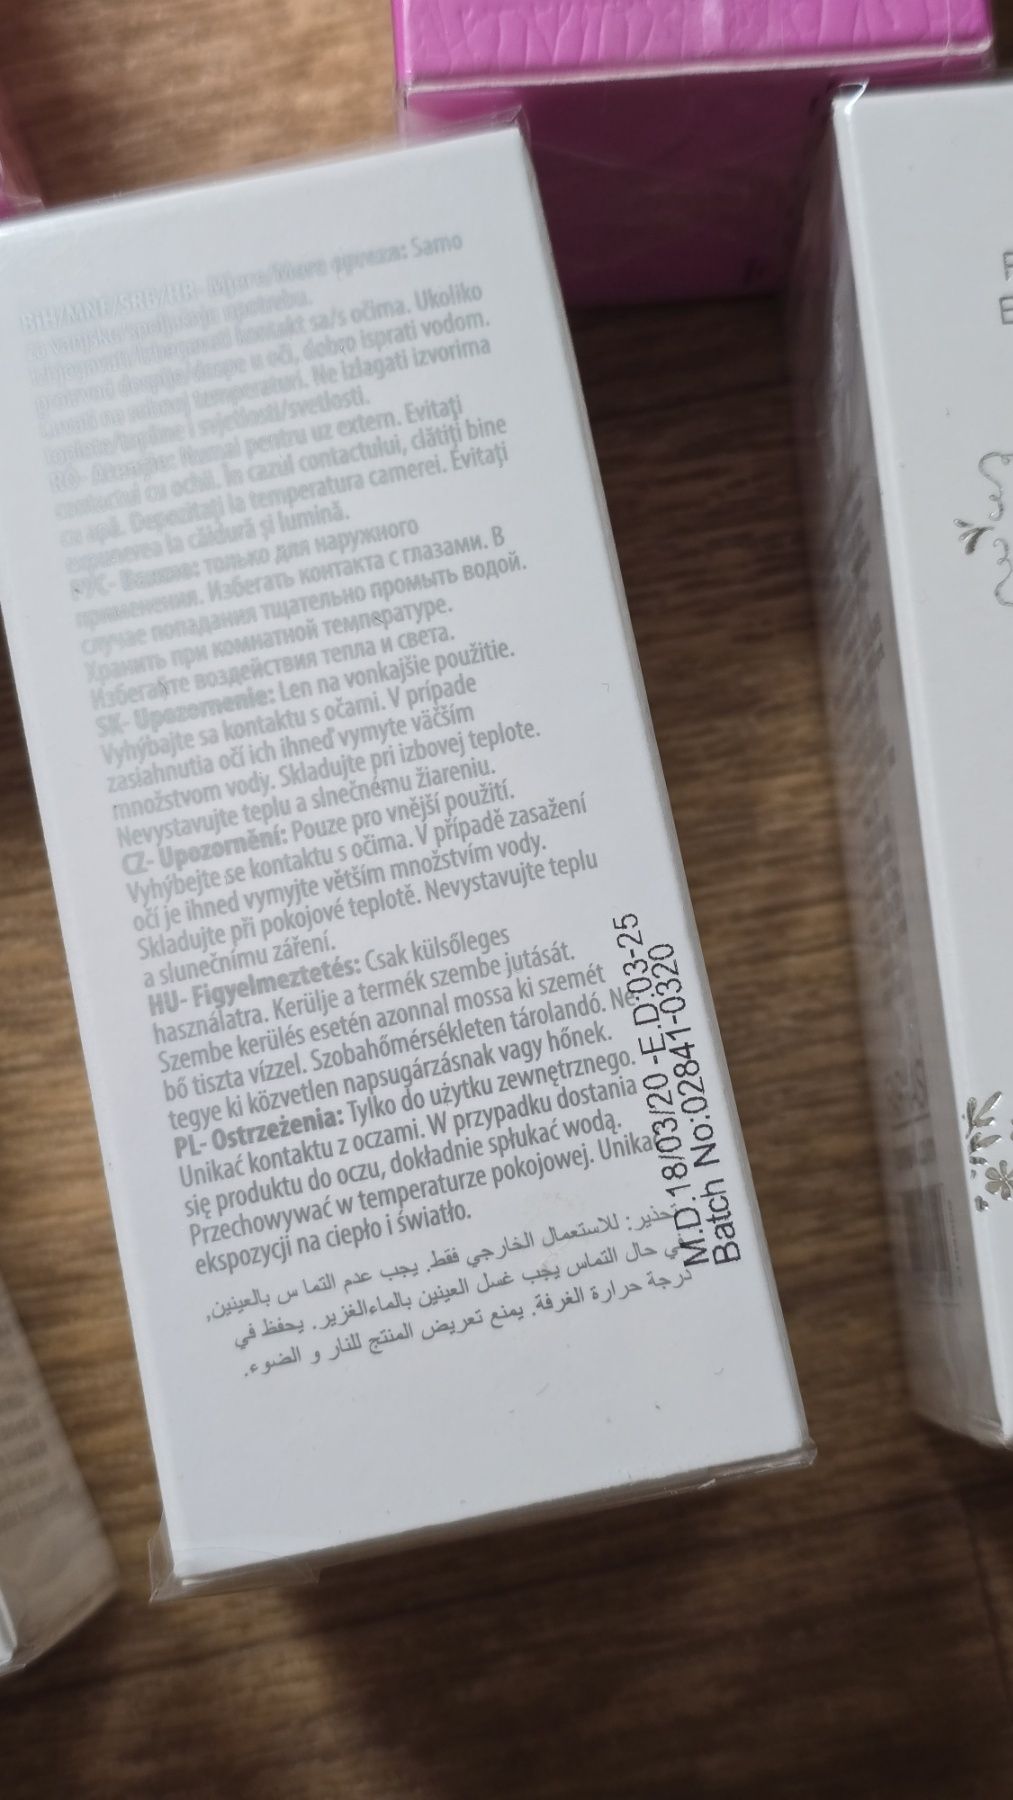 BiH/MNE/SRB/HR- Mjere/Mere opreza: Samo
za vanjsku/spoljašnju upotrebu.
Izbjegavati/Izbegavati kontakt sa/s očima. Ukoliko
proizvod dospije/dospe u oči, dobro isprati vodom.
Čuvati na sobnoj temperaturi. Ne izlagati izvorima
toplote/topline i svjetlosti/svetlosti.
RO- Atenție: Numai pentru uz extern. Evitați
contactul cu ochii. În cazul contactului, clătiți bine
cu apă. Depozitați la temperatura camerei. Evitați
expunerea la căldură și lumină.
РУС- Важно: только для наружного
применения. Избегать контакта с глазами. В
случае попадания тщательно промыть водой.
Хранить при комнатной температуре.
Избегайте воздействия тепла и света.
SK- Upozornenie: Len na vonkajšie použitie.
Vyhýbajte sa kontaktu s očami. V prípade
zasiahnutia očí ich ihneď vymyte väčším
množstvom vody. Skladujte pri izbovej teplote.
Nevystavujte teplu a slnečnému žiareniu.
CZ- Upozornění: Pouze pro vnější použití.
Vyhýbejte se kontaktu s očima. V případě zasažení
očí je ihned vymyjte větším množstvím vody.
Skladujte při pokojové teplotě. Nevystavujte teplu
a slunečnímu záření.
HU- Figyelmeztetés: Csak külsőleges
használatra. Kerülje a termék szembe jutását.
Szembe kerülés esetén azonnal mossa ki szemét
bő tiszta vízzel. Szobahőmérsékleten tárolandó. Ne
tegye ki közvetlen napsugárzásnak vagy hőnek.
PL- Ostrzeżenia: Tylko do użytku zewnętrznego.
Unikać kontaktu z oczami. W przypadku dostania
się produktu do oczu, dokładnie spłukać wodą.
Przechowywać w temperaturze pokojowej. Unikać
ekspozycji na ciepło i światło.
تحذير: للاستعمال الخارجي فقط. يجب عدم التما س بالعينين,
في حال التماس يجب غسل العينين بالماءالغزير. يحفظ في
درجة حرارة الغرفة. يمنع تعريض المنتج للنار و الضوء.
M.D:18/03/20 -E.D:03-25
Batch No:02841-0320